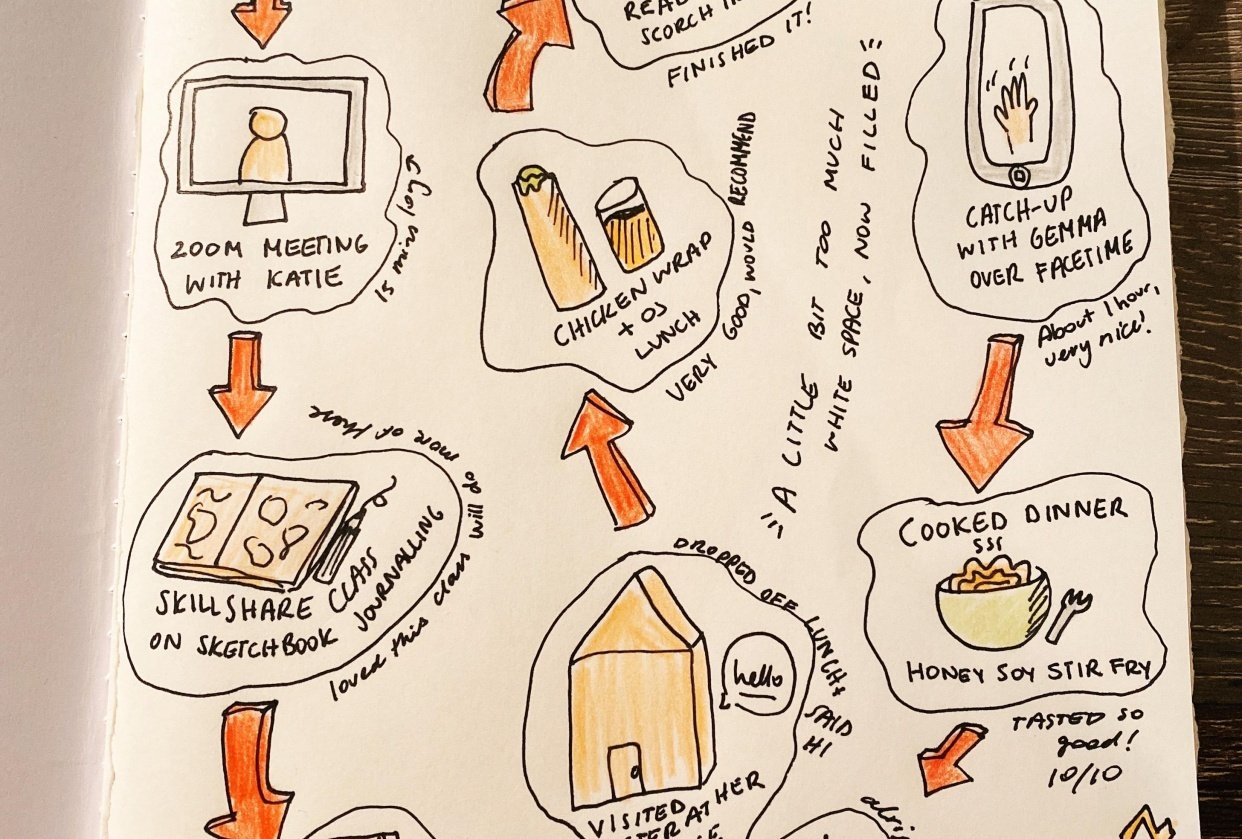 ZOOM MEETING
WITH KATIE
15 mins long
SKILLSHARE CLASS
ON SKETCHBOOK JOURNALLING
loved this class will do more of these
SCORCH
FINISHED IT!
CHICKEN WRAP
+ OJ
LUNCH
VERY GOOD, WOULD RECOMMEND
DROPPED OFF LUNCH +
SAID
HI
hello
VISITED
AT HER
"A LITTLE BIT TOO MUCH
WHITE SPACE, NOW FILLED"
CATCH-UP
WITH GEMMA
OVER FACETIME
About 1 hour,
very nice!
COOKED DINNER
SSS
HONEY SOY STIR FRY
TASTED SO
good!
10/10